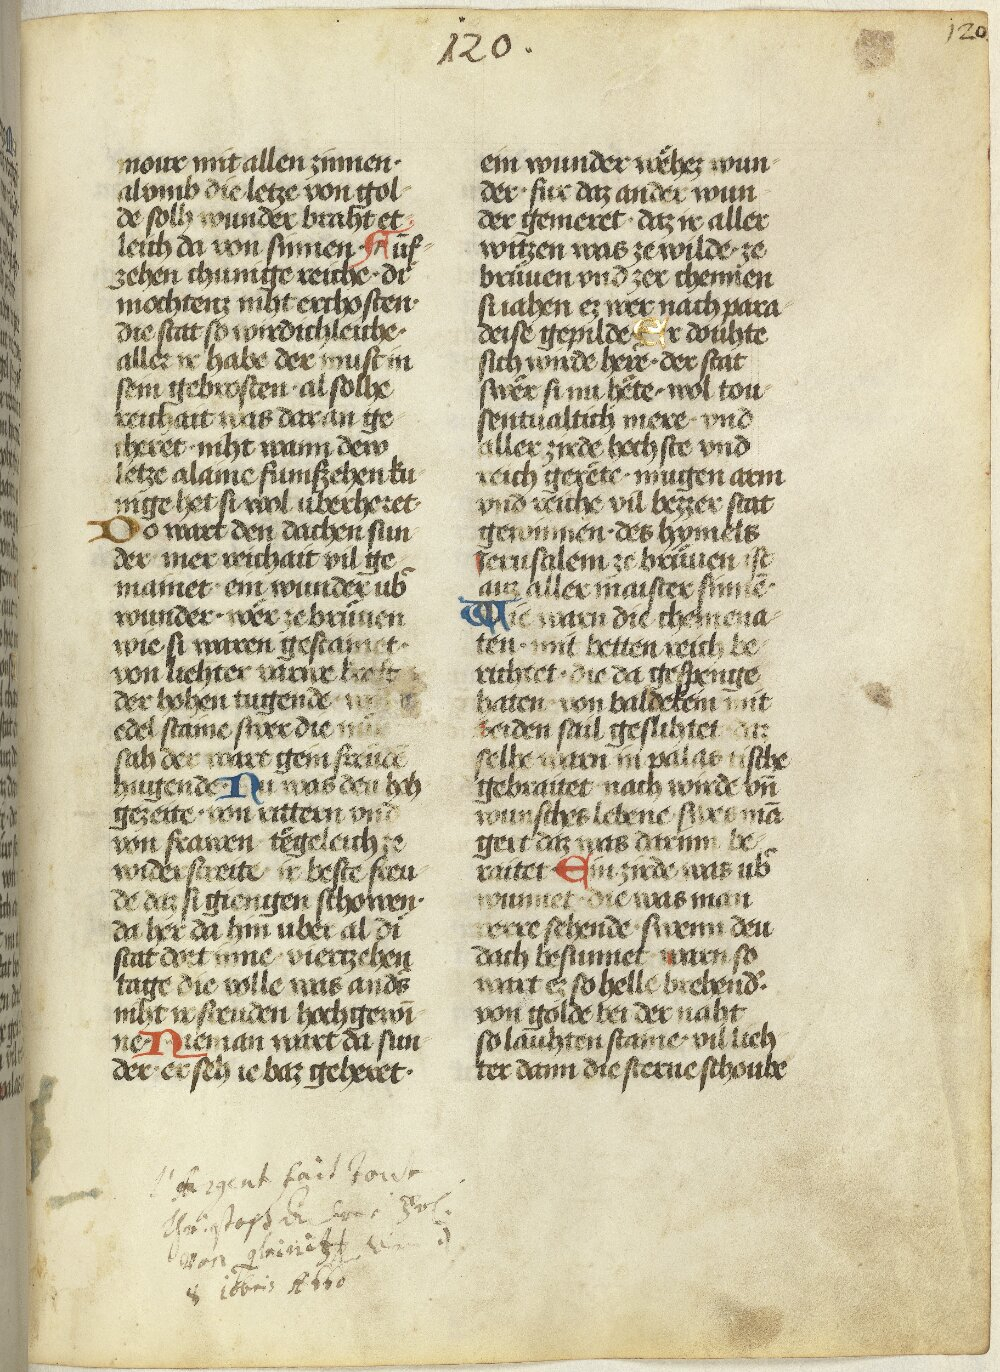 120.
120
mour mit allen zinnen·
alvmb die letze von gol-
de solh wunder braht et-
leich da von sinnen· Fůnf-
zehen chunige reiche· di
mochtenz niht erchosten·
die stat so wirdichleiche·
aller ir habe der must in
sein gebrosten· al solhe
reichait was dar an ge-
cheret· niht wann dew
letze alaine fumfzehen ku-
nige het si wol uberheret·
Do wart den dachen sun-
der mer reichait vil ge-
mainet· ein wunder ub̄
wunder· wer ze brüuen
wie si waren gestainet·
von liehter varwe kraft
der hohen tugende·
edel staine swer die
sah der wart gein freudē
hugende· Nu was den hoh
gezeite· von rittern vnd
von frawen· tegeleich ze
widerstreite· ir beste freu-
de daz si giengen schowen·
da her da hin uber al di
stat dort inne· viertzehen
tage die volle was anders
niht ir freuden hochgewī-
ne· Nieman wart da sun-
der· er seh ie baz geheret·
ein wunder wehez wun-
der· fur daz ander wun-
der gemeret· daz ir aller
witzen was ze wilde· ze
brüuen vnd zer chemien
si iahen ez wer nach para-
deise gepilde· Er douhte
sich wirde here· der stat
swer si nu hete· wol tou-
sentualtich mere· vnd
aller zirde hochste vnd
reich gerete· mugen arm
vnd reiche vil bezzer stat
gewinnen· des hymels
Jerusalem ze brüuen ist
auz aller maister sinnē·
Wie warn die chemena-
ten· mit betten reich be-
richtet· die da gespenge
haten· von baldekein mit
seiden sail geslihtet· daz
selbe warn in palas tische
gebraitet· nach wirde vn̄
wunsches lebene· swes mā
gert daz was darinn be-
raitet· Ein zirde was ub̄
wunnet· die was man
verre sehende· swenn den
dach besunnet· warn so
wart ez so helle brehend·
von golde bei der naht
so lauhten staine· vil lieh-
ter dann die sterne schoube